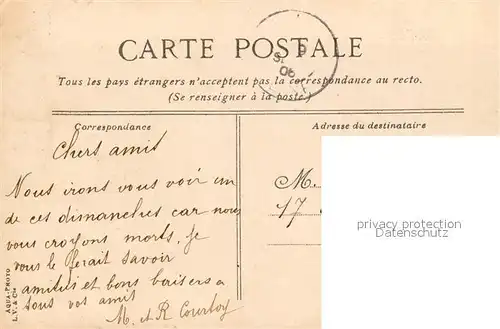 CARTE POSTALE
Tous les pays étrangers n'acceptent pas la correspondance au recto.
(Se renseigner à la poste.)
Correspondance
Adresse du destinataire
Chers amis
Nous irons vous voir un
de ces dimanches car nous
vous croyons morts, je
vous le ferait savoir
amitiés et bons baisers a
tous vos amis
M. et R Courtoy
M.
17
privacy protection
Datenschutz
AQUA-PHOTO
L.V. & Cie